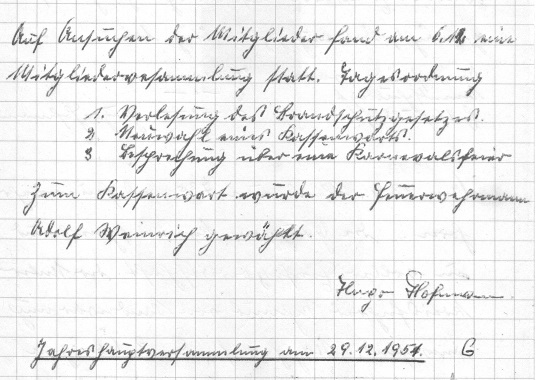 Auf Ansuchen der Mitglieder fand am 6.12. eine
Mitgliederversammlung statt. Tagesordnung
1. Verlesung des Brandschutzgesetzes.
2. Neuwahl eines Kassenwarts.
3 Besprechung über eine Karnevalsfeier
Zum Kassenwart wurde der Feuerwehrmann
Adolf Weinrich gewählt.
Hugo Hofmann
Jahreshauptversammlung am 29.12.1951. 6